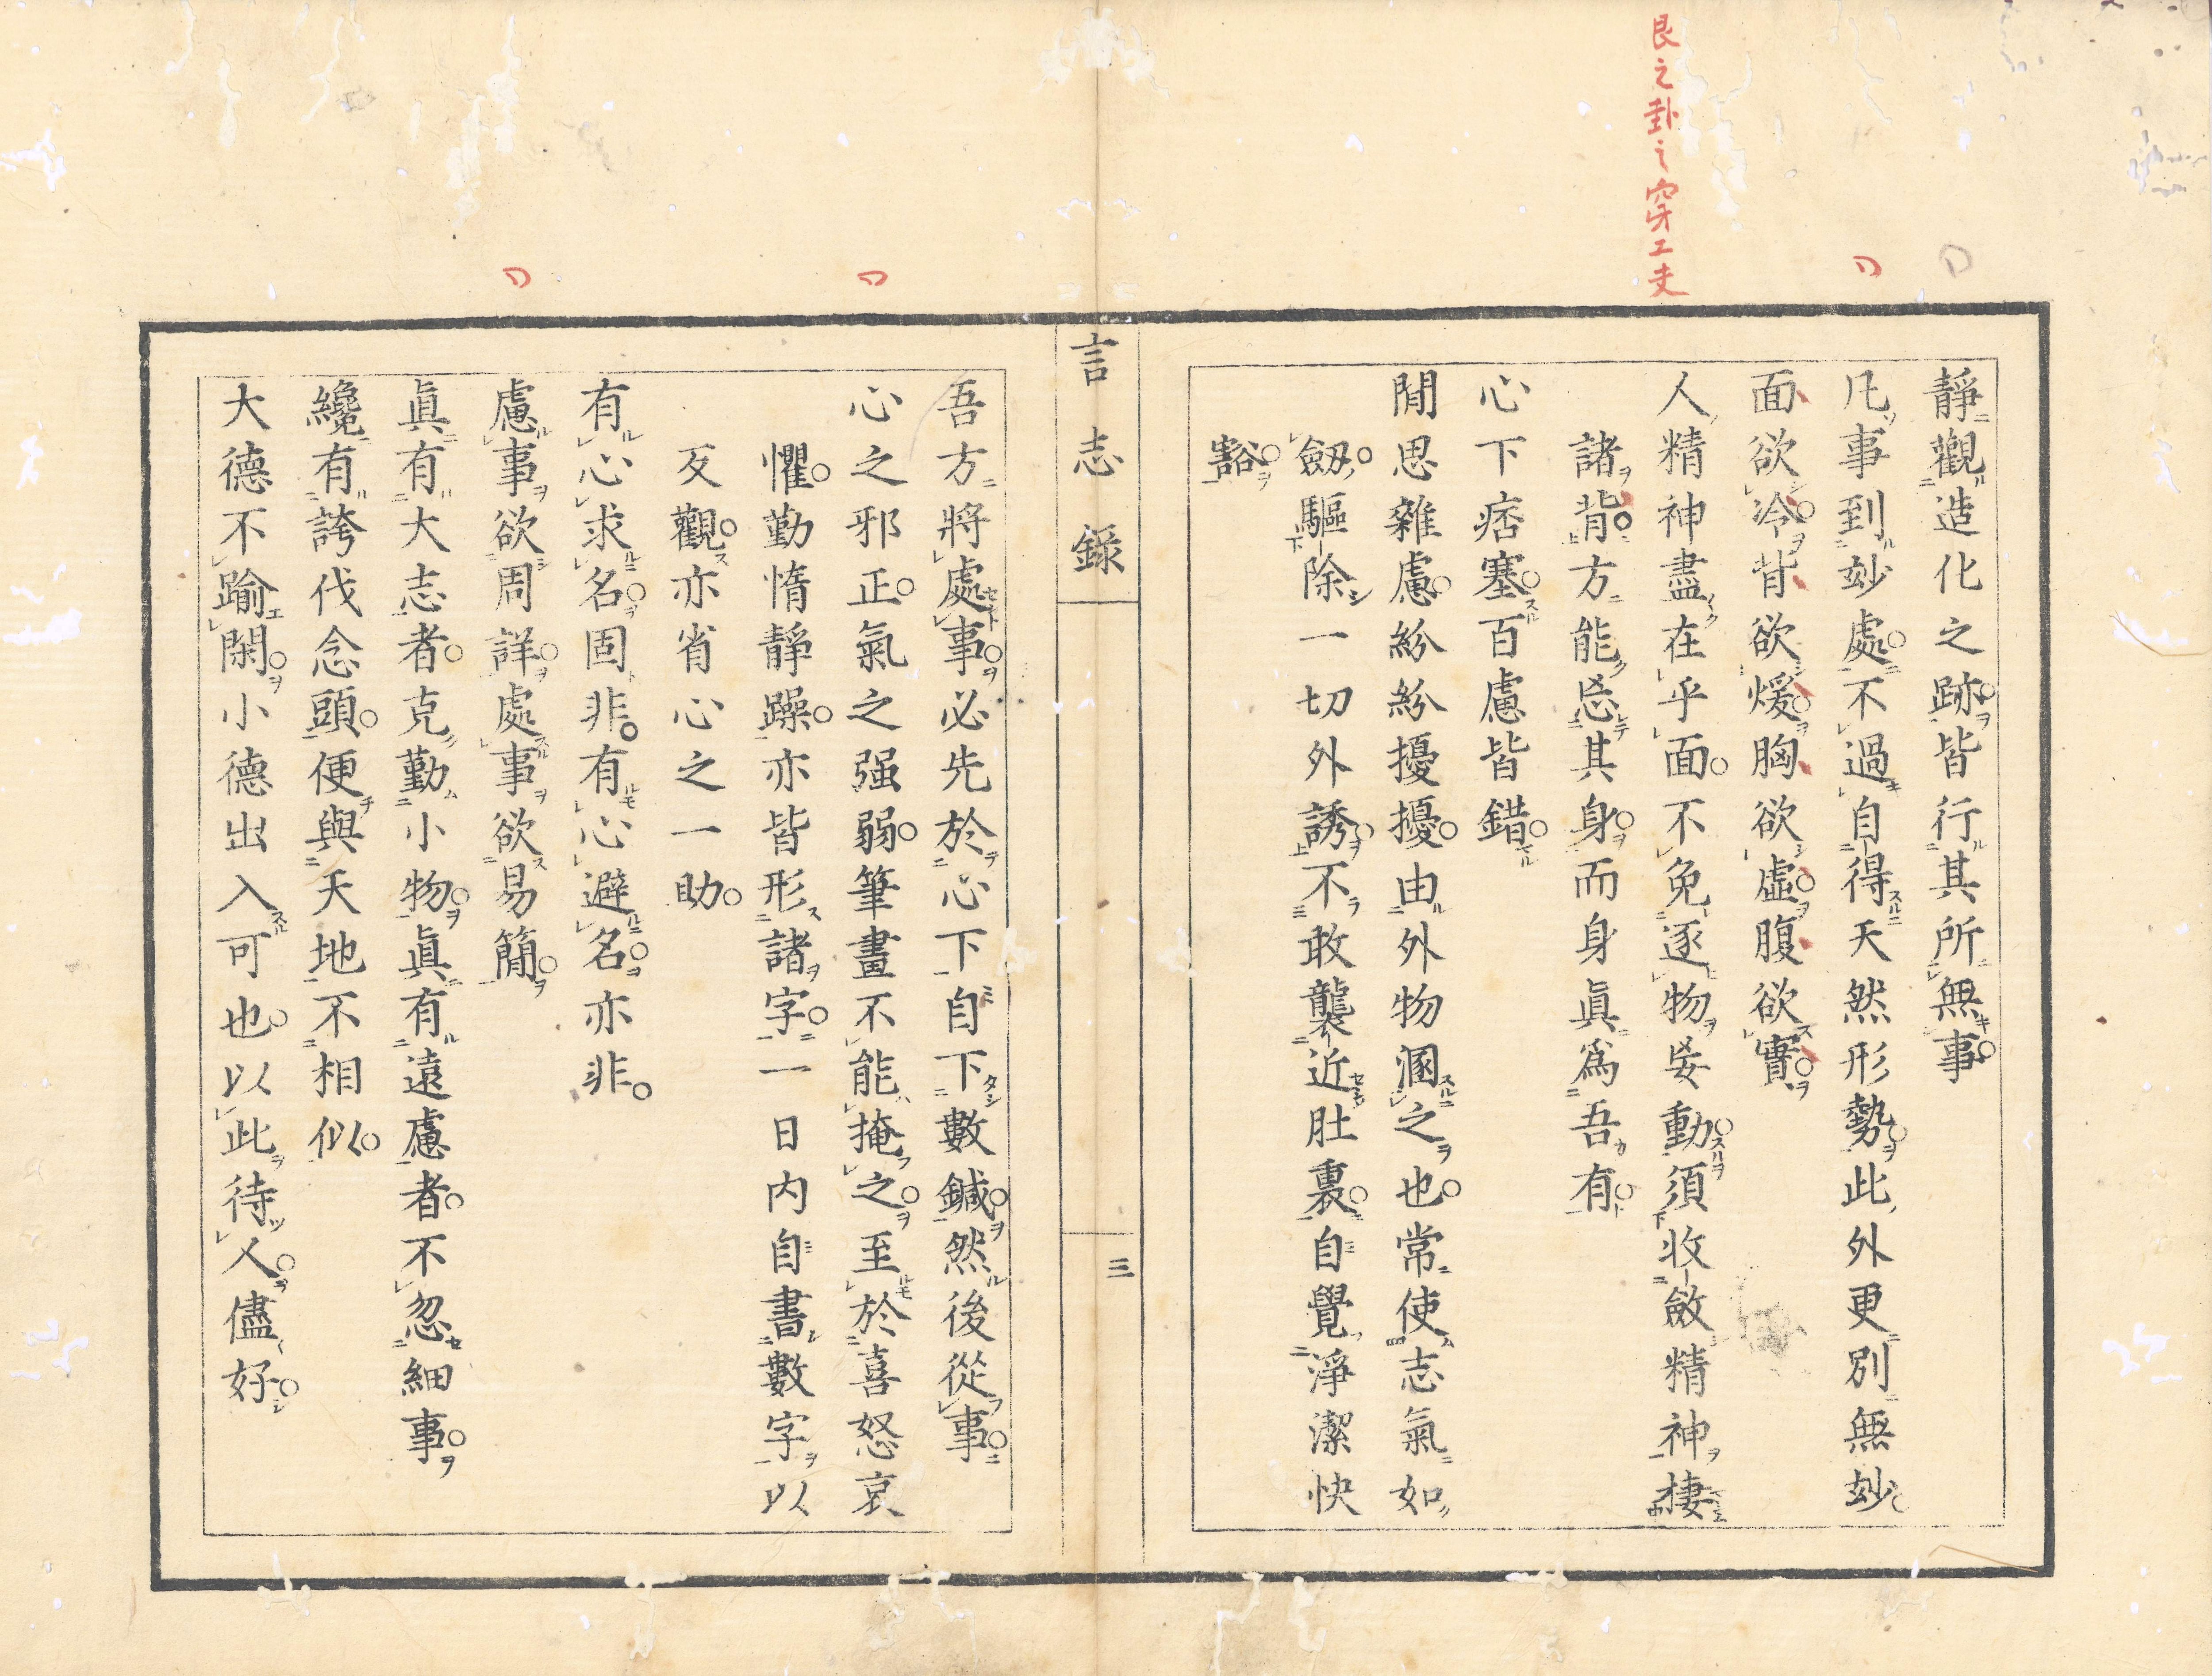 艮之卦之穿工夫
靜觀造化之跡皆行其所無事
凡事到玅處不過自得天然形勢此外更別無玅
面欲冷背欲煖胸欲虛腹欲實
人精神盡在乎面不免逐物妄動須收斂精神棲
諸背方能忘其身而身眞爲吾有
心下痞塞百慮皆錯
閒思雜慮紛紛擾擾由外物溷之也常使志氣如
劔驅除一切外誘不敢襲近肚裏自覺淨潔快
豁
言志錄
三
吾方將處事必先於心下自下數鍼然後從事
心之邪正氣之强弱筆畫不能掩之至於喜怒哀
懼勤惰靜躁亦皆形諸字一日內自書數字以
反觀亦省心之一助
有心求名固非有心避名亦非
慮事欲周詳處事欲易簡
眞有大志者克勤小物眞有遠慮者不忽細事
纔有誇伐念頭便與天地不相似
大德不踰閑小德出入可也以此待人儘好